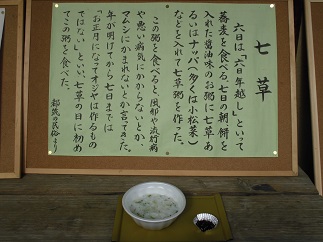 七草
六日は、「六日年越し」といって
蕎麦を食べる。七日の朝、餅を
入れた醤油味のお粥に七草あ
るいはナッパ(多くは小松菜)
などを入れて七草粥を作った。
この粥を食べると、風邪や流行病
や悪い病気にかからないとか、
マムシにかまれないとか言ってきた。
年が明けてから七日までは
「お正月になってオジヤは作るもの
ではない」といい、七草の日に初め
てこの粥を食べた。
都筑の民俗より